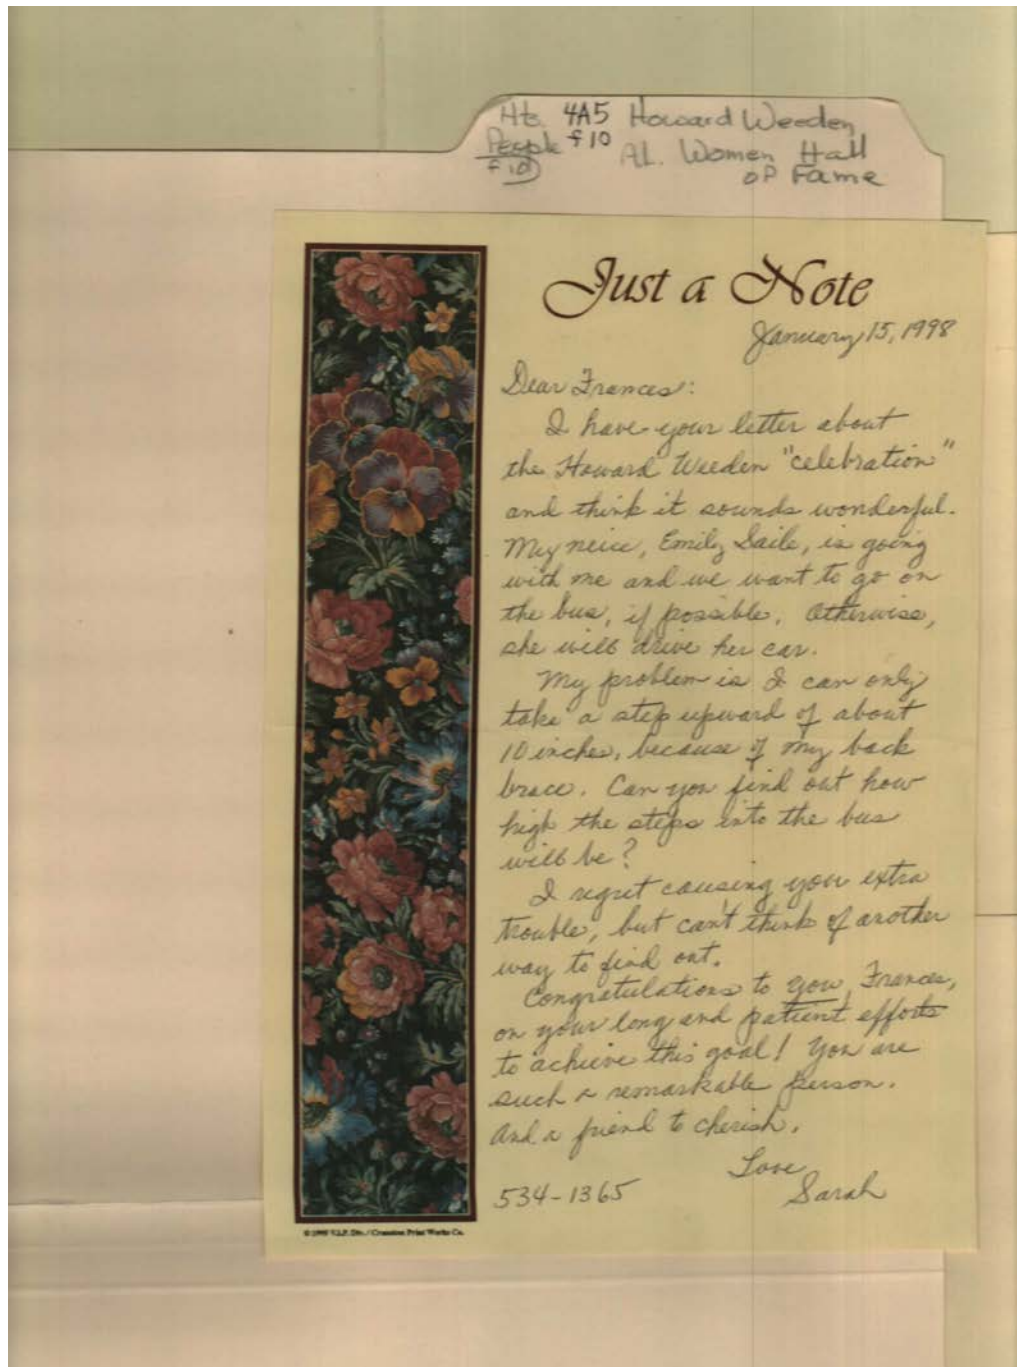 Hts. 4A5 Howard Weeden
People f10 AL. Women Hall
f10 of Fame
Just a Note
January 15, 1998
Dear Frances:
I have your letter about
the Howard Weeden "celebration"
and think it sounds wonderful.
My neice, Emily Saile, is going
with me and we want to go on
the bus, if possible. Otherwise,
she will drive her car.
My problem is I can only
take a step upward of about
10 inches, because of my back
brace. Can you find out how
high the steps into the bus
will be?
I regret causing you extra
trouble, but can't think of another
way to find out.
Congratulations to you, Frances,
on your long and patient efforts
to achieve this goal! You are
such a remarkable person.
And a friend to cherish.
Love
534-1365 Sarah
© 1995 V.I.P. Div. / Cranston Print Works Co.